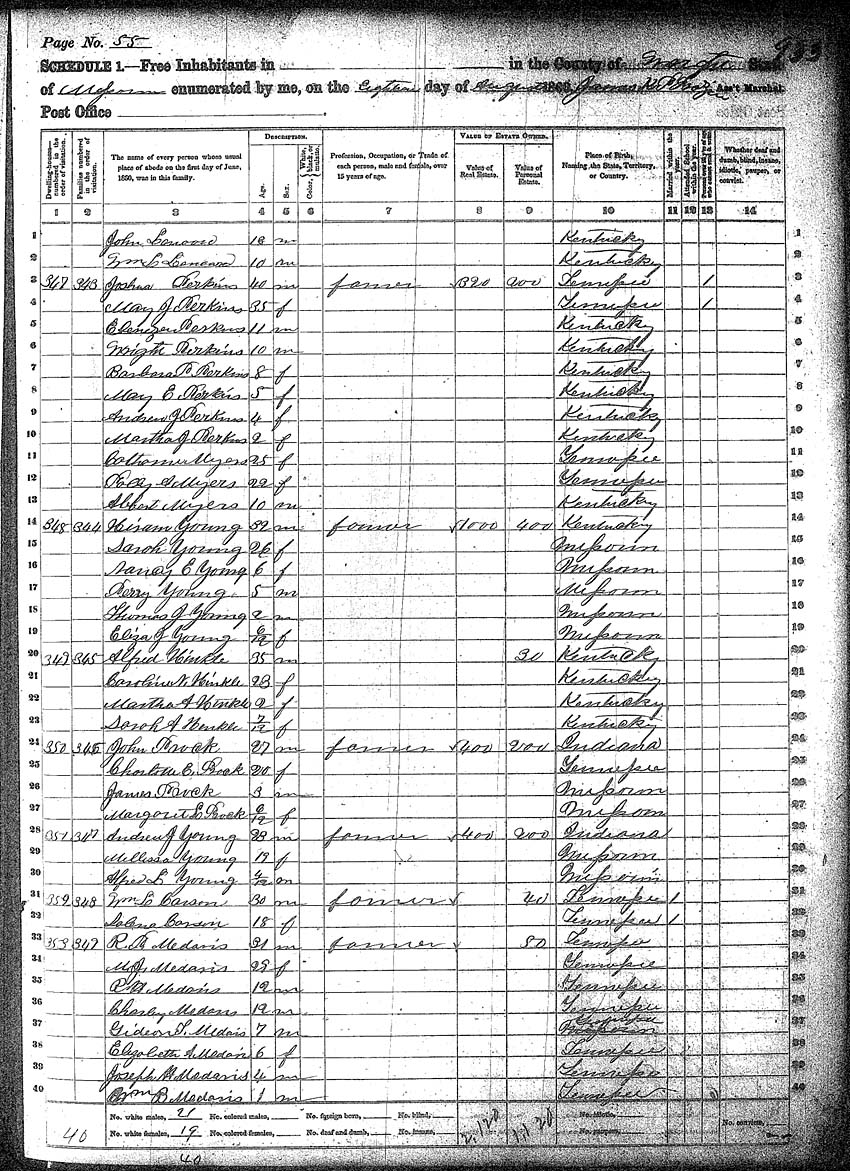 Page No. 55
SCHEDULE 1.—Free Inhabitants in in the County of State
of enumerated by me, on the day of August 1860. Ass't Marshal.
Post Office
Dwelling-houses— numbered in the order of visitation.
Families numbered in the order of visitation.
The name of every person whose usual place of abode on the first day of June, 1860, was in this family.
DESCRIPTION.
Age.
Sex.
Color, White, black, or mulatto.
Profession, Occupation, or Trade of each person, male and female, over 15 years of age.
VALUE OF ESTATE OWNED.
Value of Real Estate.
Value of Personal Estate.
Place of Birth, Naming the State, Territory, or Country.
Married within the year.
Attended School within the year.
Whether deaf and dumb, blind, insane, idiotic, pauper, or convict.
1 2 3 4 5 6 7 8 9 10 11 12 13 14
1 John m Kentucky 1
2 Wm L 10 m Kentucky 2
3 347 343 Joshua Perkins 40 m farmer 320 200 Tennessee 1 3
4 May J Perkins 35 f Tennessee 1 4
5 Ebenezer Perkins 11 m Kentucky 5
6 Wright Perkins 10 m Kentucky 6
7 Barbara Perkins 8 f Kentucky 7
8 May E Perkins 5 f Kentucky 8
9 Andrew J Perkins 4 f Kentucky 9
10 Martha J Perkins 2 f Kentucky 10
11 Myers 25 f Tennessee 11
12 A Myers 22 f Tennessee 12
13 Albert Myers 10 m Kentucky 13
14 348 344 Hiram Young 32 m farmer 1000 400 Kentucky 14
15 Sarah Young 26 f Missouri 15
16 Nancy E Young 6 f Missouri 16
17 Perry Young 5 m Missouri 17
18 Thomas J Young 2 m Missouri 18
19 Eliza J Young 6/12 f Missouri 19
20 349 345 Alfred Hinkle 35 m 30 Kentucky 20
21 Caroline N Hinkle 23 f Kentucky 21
22 Martha A Hinkle 2 f Kentucky 22
23 Sarah A Hinkle 7/12 f Kentucky 23
24 350 346 John Brock 27 m farmer 400 200 Indiana 24
25 Charlotte E Brock 20 f Tennessee 25
26 James Brock 3 m Missouri 26
27 Margaret L Brock 6/12 f Missouri 27
28 351 347 Andrew J Young 23 m farmer 400 200 Indiana 28
29 Millissa Young 19 f Missouri 29
30 Alfred L Young m Missouri 30
31 352 348 Wm L Carson 30 m farmer 40 Tennessee 1 31
32 Carson 18 f Tennessee 1 32
33 353 349 R Medaris 31 m farmer 50 Tennessee 33
34 M J Medaris 29 f Tennessee 34
35 Medaris 12 m Tennessee 35
36 Charley Medaris 12 m Tennessee 36
37 Gideon S. Medaris 7 m Tennessee 37
38 Elizabeth A Medaris 6 f Tennessee 38
39 Joseph H Medaris 4 m Tennessee 39
40 Wm B Medaris 1 m Tennessee 40
No. white males, 21 No. colored males, No. foreign born, No. blind, No. idiotic, No. convicts,
No. white females, 19 No. colored females, No. deaf and dumb, No. insane, No. paupers,
40 2,120
40